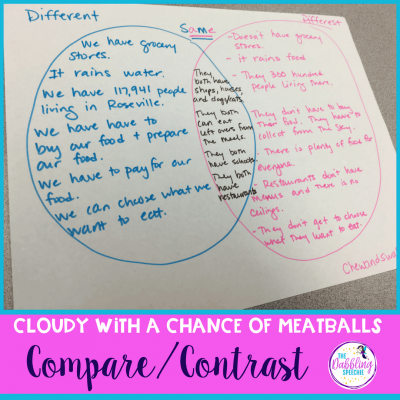 Different
Same
Different
We have grocery
stores.
It rains water.
We have 117,941 people
living in Roseville.
We have have to
buy our food + prepare
our food.
We have to pay for our
food.
We can chose what we
want to eat.
They
both have
ships, houses
and dogs/cats.
They both
can eat
left overs from
the meals.
They both
have schools.
They both
have
restaurants
-Doesn't have grocery
stores.
- it rains food
- They 300 hundred
people living there.
- They don't have to buy
their food. They have to
collect from the sky.
- There is plenty of food for
everyone.
- Restaurants don't have
menus and there is no
ceilings.
- They don't get to choose
what they want to eat.
CLOUDY WITH A CHANCE OF MEATBALLS
Compare/Contrast
THE
Dabbling
SPEECHIE